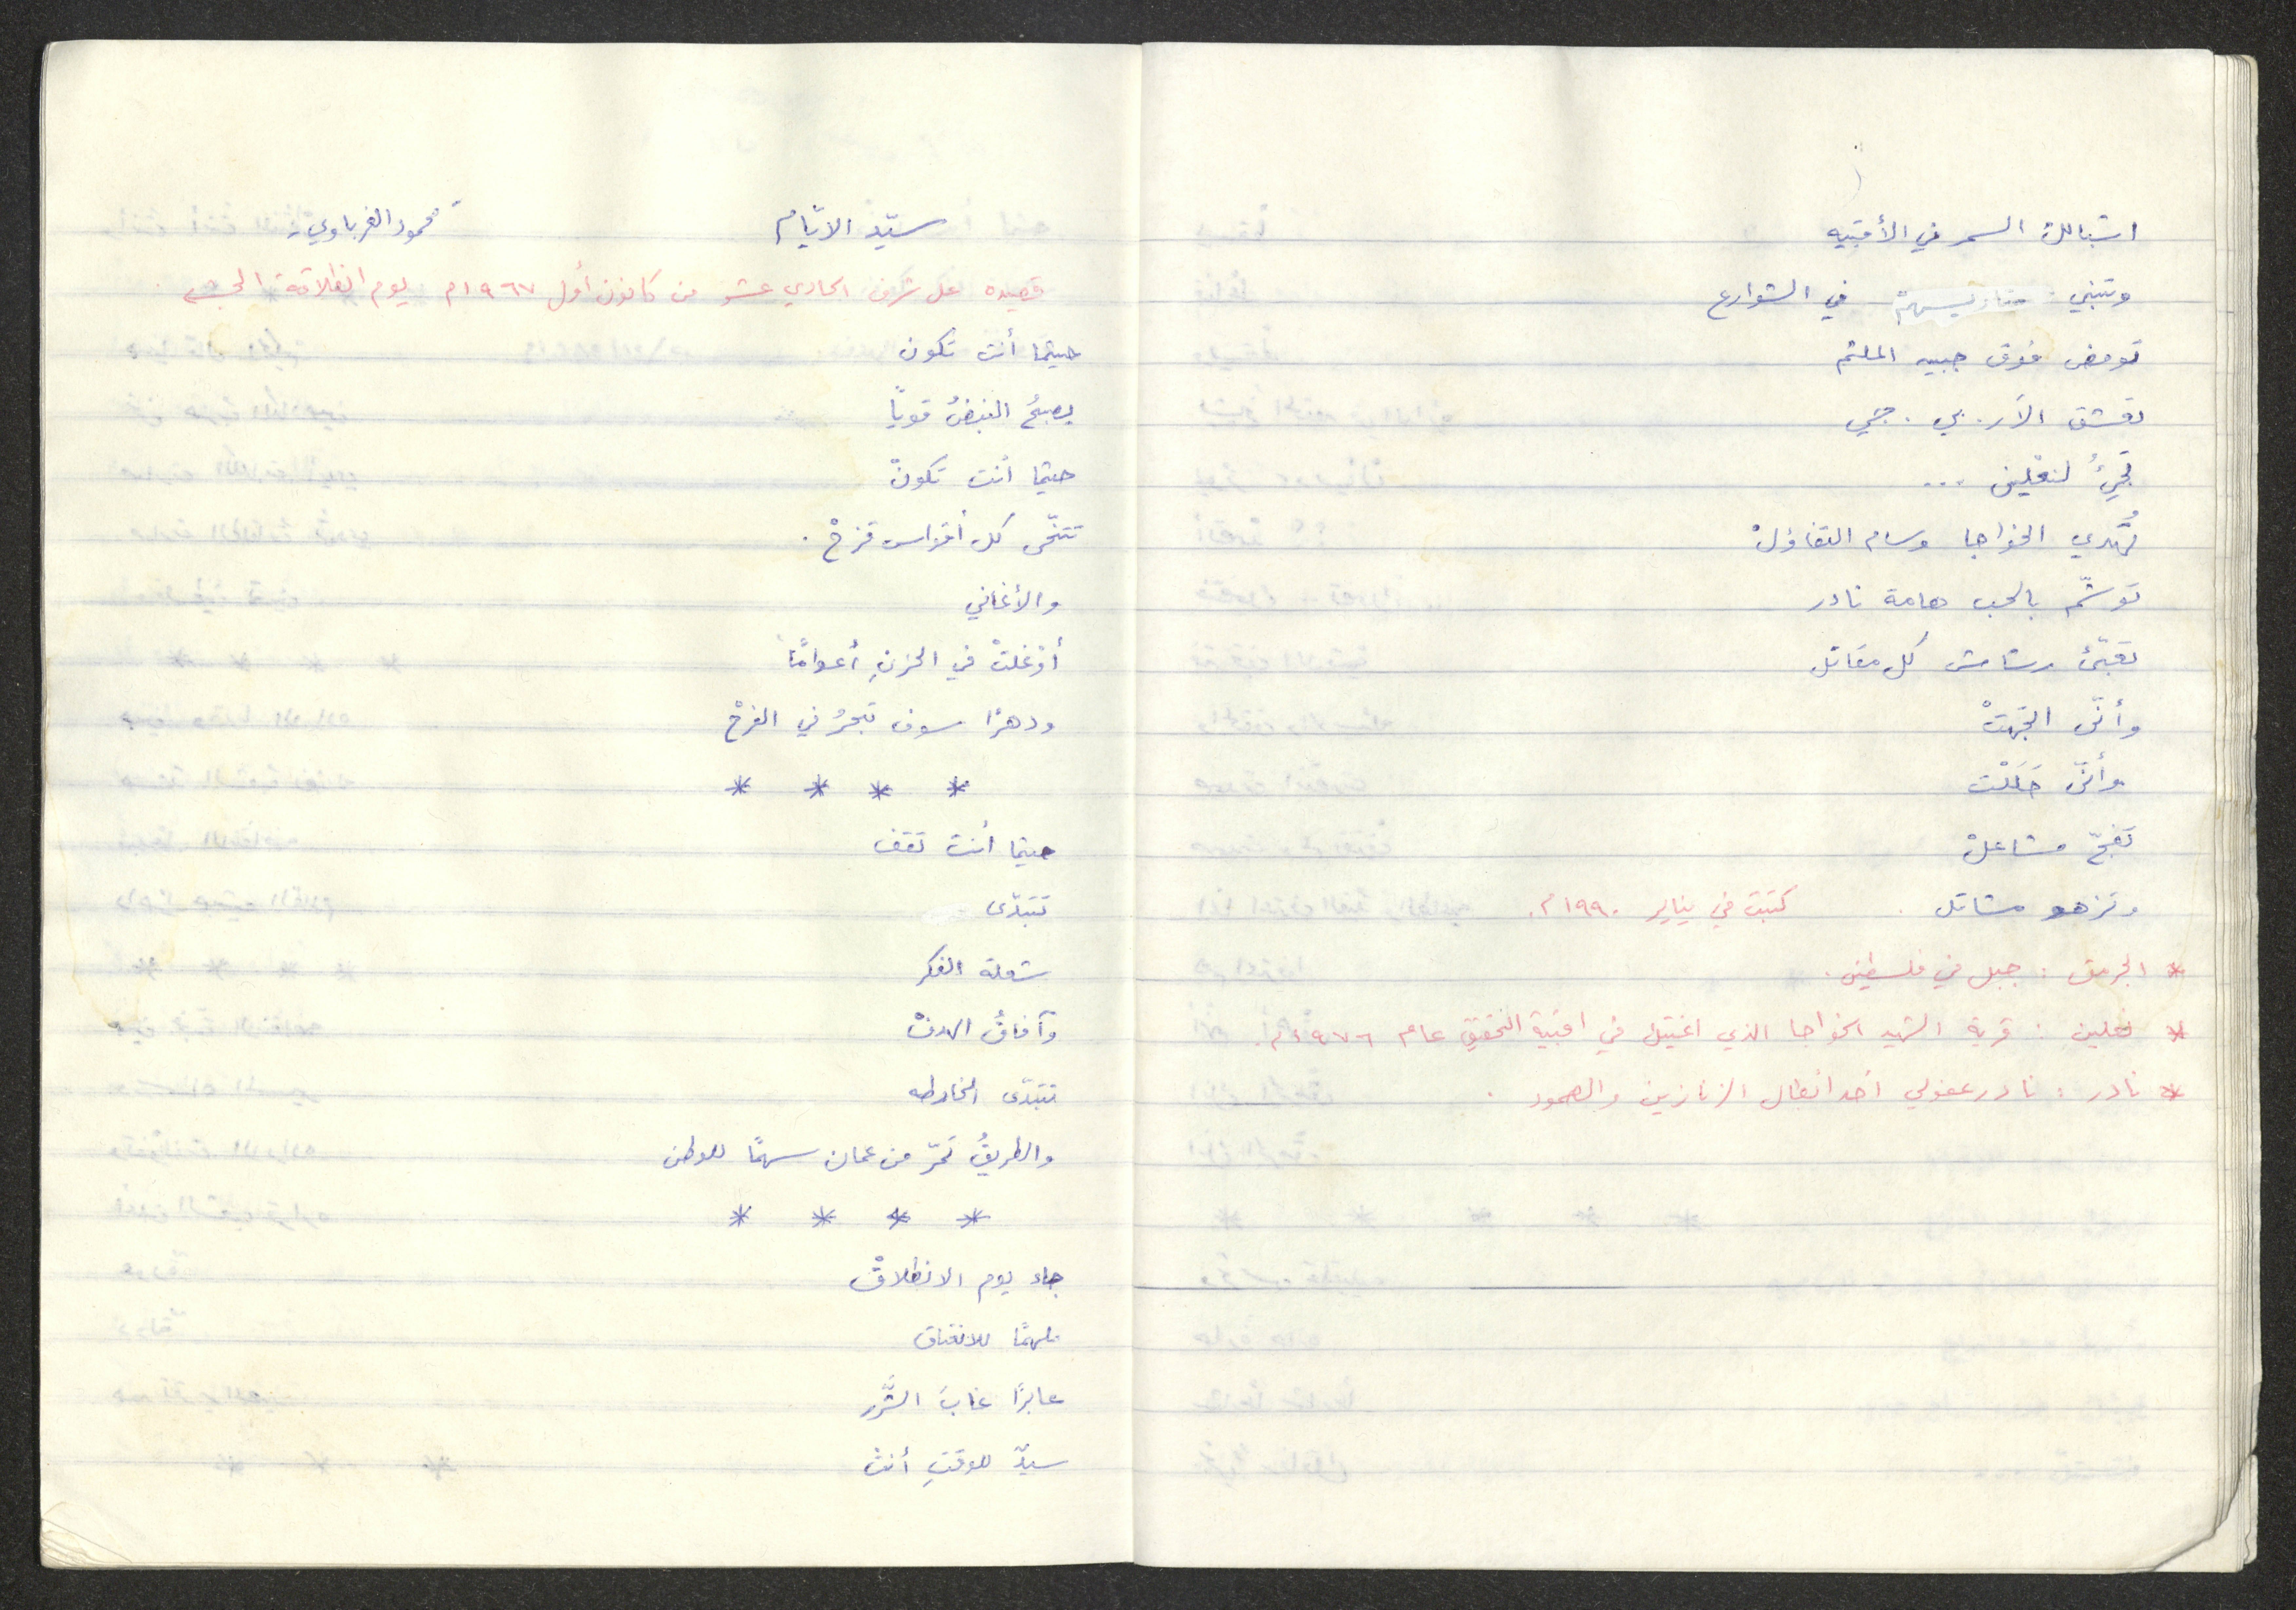 اشبالك السمر في الأقبيه
وتبني متاريسهم في الشوارع
تومض فوق جبيه الملثم
تعشق الآر. بي. جي
تجيءُ لنعلين ...
تُهدي الخواجا وسام التفاؤلْ
توشّم بالحب هامة نادر
تعبّئ رشاش كل مقاتل
وأنّى اتجهتْ
وأنّى حَلَلْت
تفجّ مشاعلْ
وتزهو مشاتل . كتبت في يناير ١٩٩٠م.
* الجرمق : جبل في فلسطين .
* نعلين : قرية الشهيد الخواجا الذي اغتيل في اقبية التحقيق عام ١٩٧٦م.
* نادر : نادر عفولي احد ابطال الزنازين والصمود .
سيّد الايّام محمود الغرباوي
قصيده على شرف الحادي عشر من كانون أول ١٩٦٧م يوم انطلاقة الجبهه .
حيثما أنت تكون
يصبحُ النبضُ قوياً
حيثما أنت تكونْ
تتنحّى كل أقواس قزحْ .
والأغاني
أوْغلتْ في الحزنِ أعوامًا
ودهرًا سوف تبحرُ في الفرحْ
* * * *
حيثما أنت تقف
تتبدّى
شعلة الفكر
وآفاقُ الهدفْ
تتبدّى الخارطه
والطريقُ تمرّ من عمان سهمًا للوطن
* * * *
جاء يوم الانطلاقْ
ملهمًا للانعتاق
عابرًا غابَ الشَّرر
سيدّ للوقتِ أنتْ